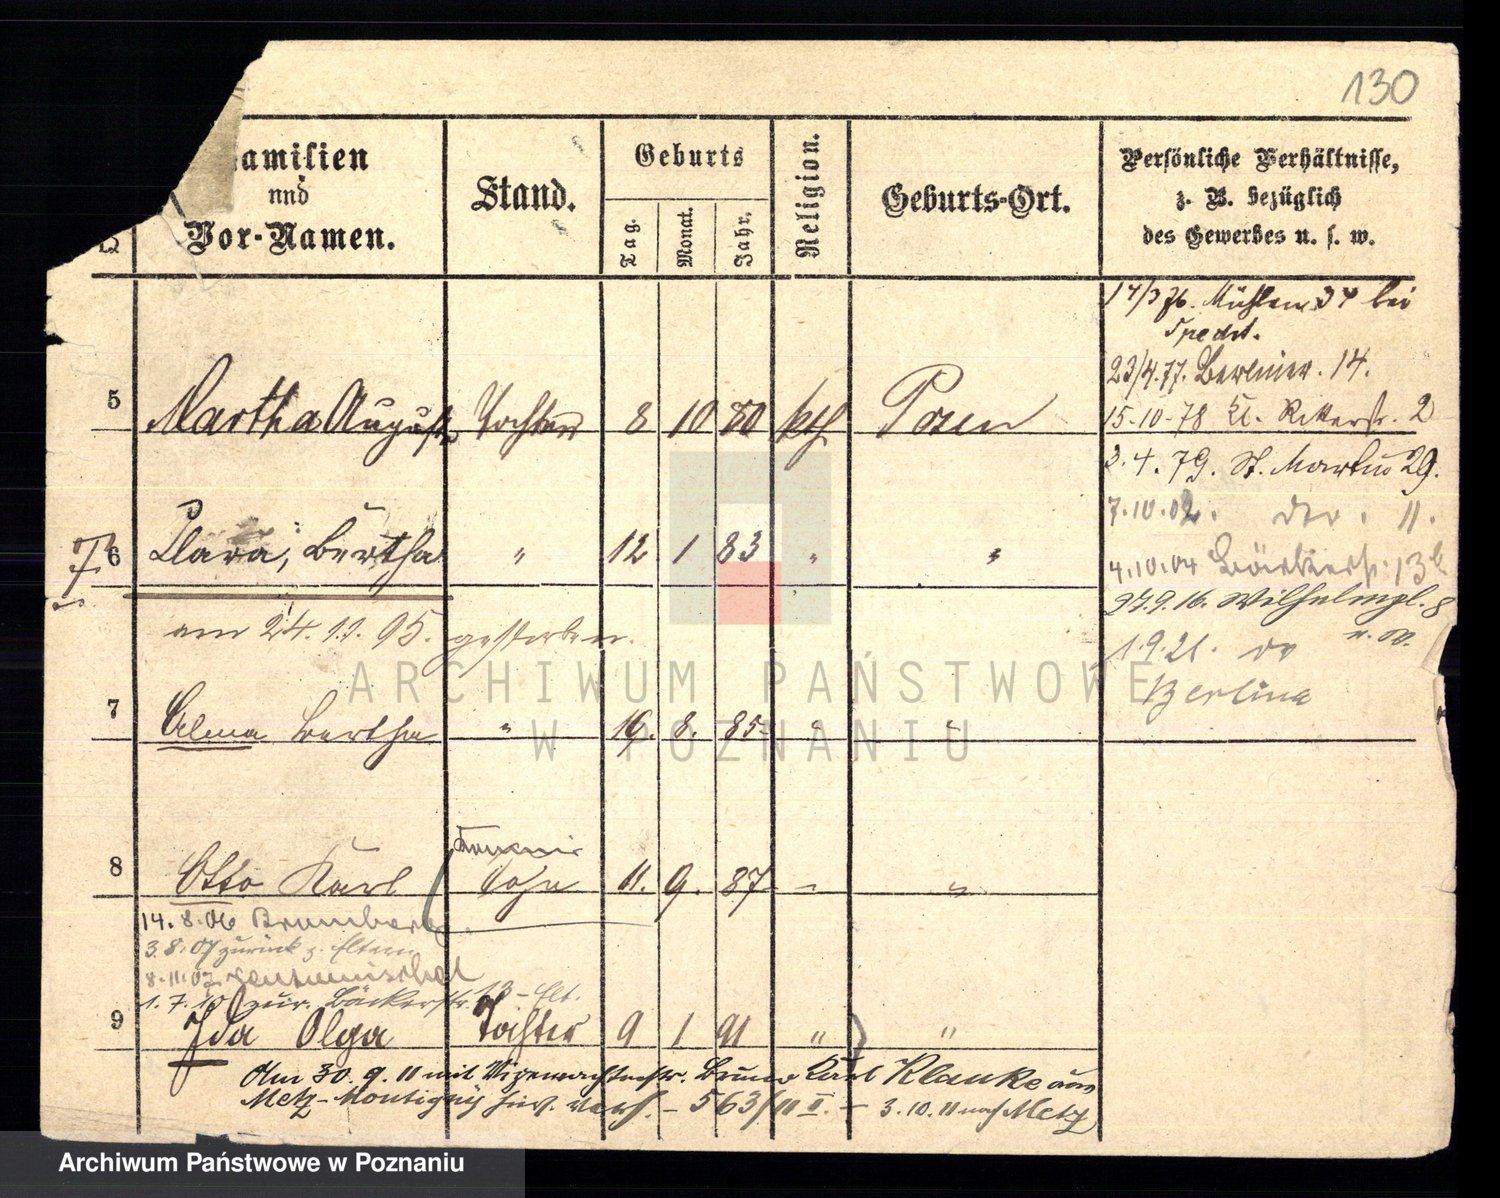 130
amilien
und
Vor-Namen.
Stand.
Geburts
Tag.
Monat.
Jahr.
Religion.
Geburts-Ort.
Persönliche Verhältnisse,
z. B. bezüglich
des Gewerbes u. s. w.
14/3 76. Mühlen 34 bei
Spedit.
23/4.77. Berliner. 14.
5 Martha August Tochter 8 10 80 kth Posen
15.10.78 Kl. 2
3.4.79. St. Martin 29.
7.10.02. 11.
6 Clara, Bertha " 12 1 83 " "
4.10.04 Bäckerstr. 13b
27.9.16. Wilhelmpl. 8
am 24.11.95. gestorben.
1.9.21. do
Berlina
7 Alma Bertha " 19. 8. 85 " "
8 Otto Karl Sohn 11. 9. 87 " "
14.8.06 Bromberg
3.8.07 zurück z. Eltern
8.11.07
1.7.10 zur. Bäckerstr. 13 - Elt.
9 Ida Olga Tochter 9 1 91 " "
Am 30.9.11 mit Vizewachtmstr. Bruno Karl Klauke aus
Metz-Montigny hier verh. - 563/11 II. - 3.10.11 nach Metz
ARCHIWUM PAŃSTWOWE
W POZNANIU
Archiwum Państwowe w Poznaniu